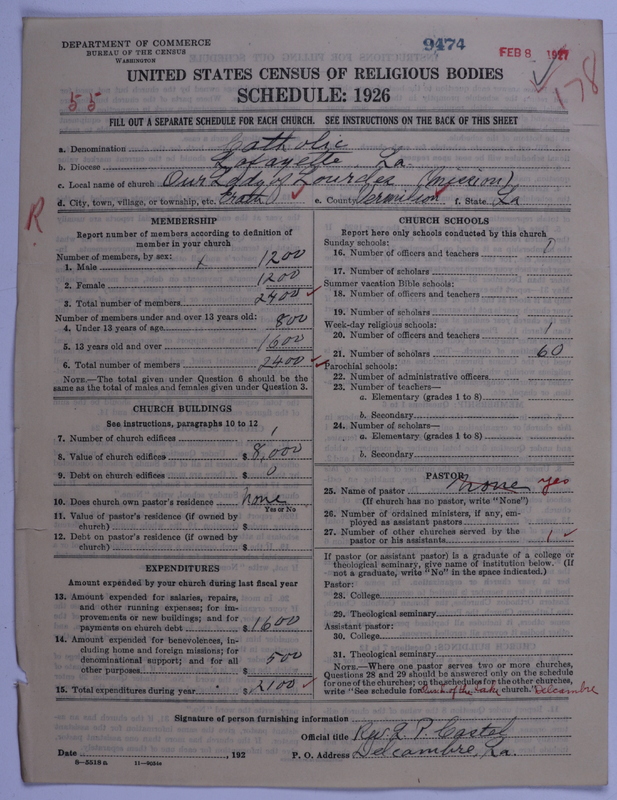 DEPARTMENT OF COMMERCE
BUREAU OF THE CENSUS
WASHINGTON
9474
FEB 8 1927
178
55
UNITED STATES CENSUS OF RELIGIOUS BODIES
SCHEDULE: 1926
FILL OUT A SEPARATE SCHEDULE FOR EACH CHURCH. SEE INSTRUCTIONS ON THE BACK OF THIS SHEET
a. Denomination Catholic
b. Diocese Lafayette La.
c. Local name of church Our Lady of Lourdes (Mission)
d. City, town, village, or township, etc. Erath e. County Vermilion f. State La
R
MEMBERSHIP
Report number of members according to definition of
member in your church
Number of members, by sex:
1. Male 1200
2. Female 1200
3. Total number of members 2400
Number of members under and over 13 years old:
4. Under 13 years of age 800
5. 13 years old and over 1600
6. Total number of members 2400
NOTE.—The total given under Question 6 should be the
same as the total of males and females given under Question 3.
CHURCH BUILDINGS
See instructions, paragraphs 10 to 12
7. Number of church edifices 1
8. Value of church edifices $ 8,000
9. Debt on church edifices $ 0
10. Does church own pastor's residence none
Yes or No
11. Value of pastor's residence (if owned by
church) $
12. Debt on pastor's residence (if owned by
church) $
EXPENDITURES
Amount expended by your church during last fiscal year
13. Amount expended for salaries, repairs,
and other running expenses; for im-
provements or new buildings; and for
payments on church debt $ 1600
14. Amount expended for benevolences, in-
cluding home and foreign missions; for
denominational support; and for all
other purposes $ 500
15. Total expenditures during year $ 2100
CHURCH SCHOOLS
Report here only schools conducted by this church
Sunday schools:
16. Number of officers and teachers
17. Number of scholars
Summer vacation Bible schools:
18. Number of officers and teachers
19. Number of scholars
Week-day religious schools:
20. Number of officers and teachers 1
21. Number of scholars 60
Parochial schools:
22. Number of administrative officers
23. Number of teachers—
a. Elementary (grades 1 to 8)
b. Secondary
24. Number of scholars—
a. Elementary (grades 1 to 8)
b. Secondary
PASTOR
25. Name of pastor none yes
(If church has no pastor, write "None")
26. Number of ordained ministers, if any, em-
ployed as assistant pastors
27. Number of other churches served by the
pastor or his assistants 1
If pastor (or assistant pastor) is a graduate of a college or
theological seminary, give name of institution below. (If
not a graduate, write "No" in the space indicated.)
Pastor:
28. College
29. Theological seminary
Assistant pastor:
30. College
31. Theological seminary
NOTE.—Where one pastor serves two or more churches,
Questions 28 and 29 should be answered only on the schedule
for one of the churches; on the schedules for the other churches,
write "See schedule for of the Lake church." Delcambre
Signature of person furnishing information
Official title Rev.
Date , 192 P. O. Address Delcambre, La.
8—5518a 11—9034a